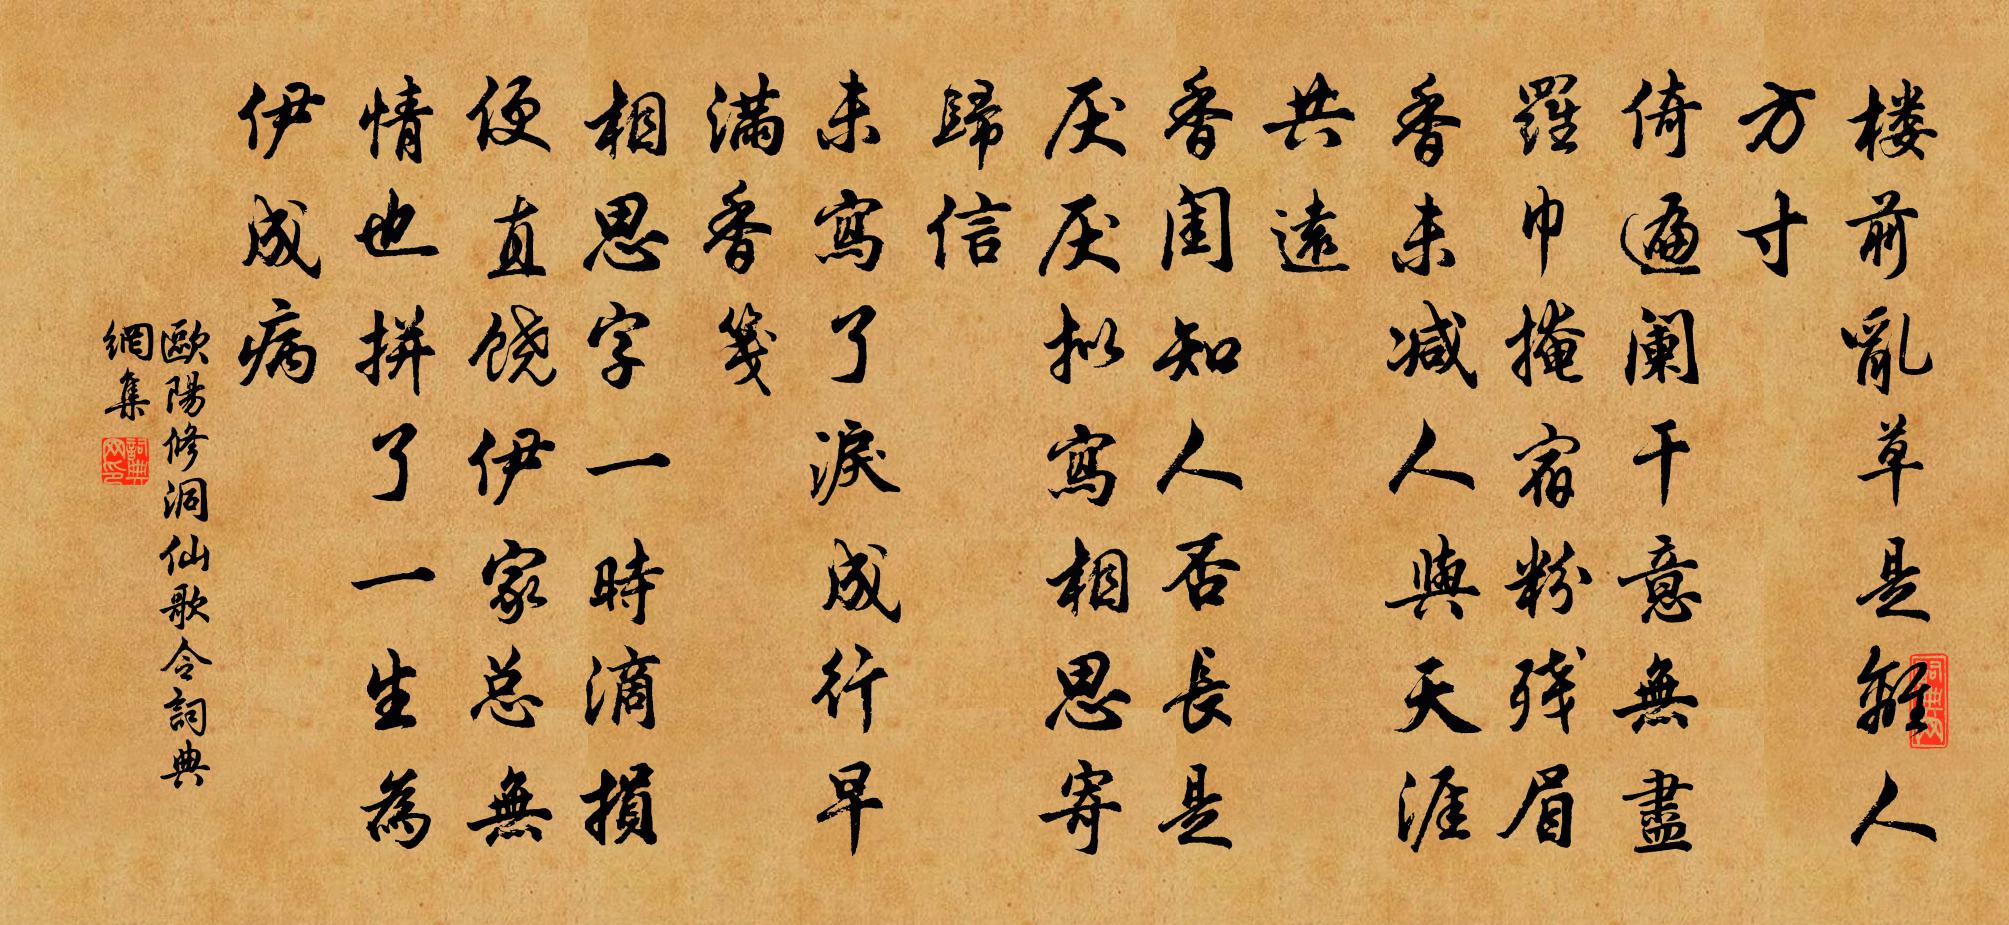 楼前亂草是離人
方寸
倚遍阑干意無盡
羅巾掩宿粉残眉
香未减人與天涯
共遠
香闺知人否長是
厌厌拟寫相思寄
歸信
未寫了淚成行早
满香笺
相思字一時滴損
便直饶伊家总無
情也拼了一生為
伊成病
歐陽修洞仙歌令詞典
網集
詞典
网印
詞典网